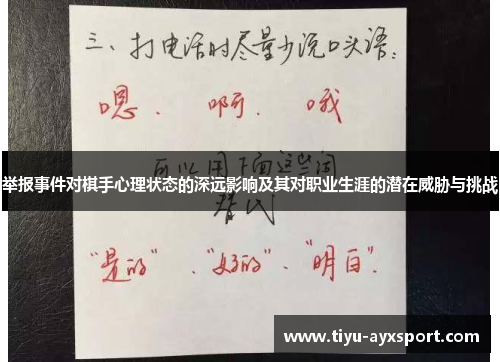 三、打电话时尽量少说口头语：
嗯． 啊． 哦
可以用下面这些词
举报事件对棋手心理状态的深远影响及其对职业生涯的潜在威胁与挑战
替代
“是的”．“好的”．“明白”．
www.tiyu-ayxsport.com